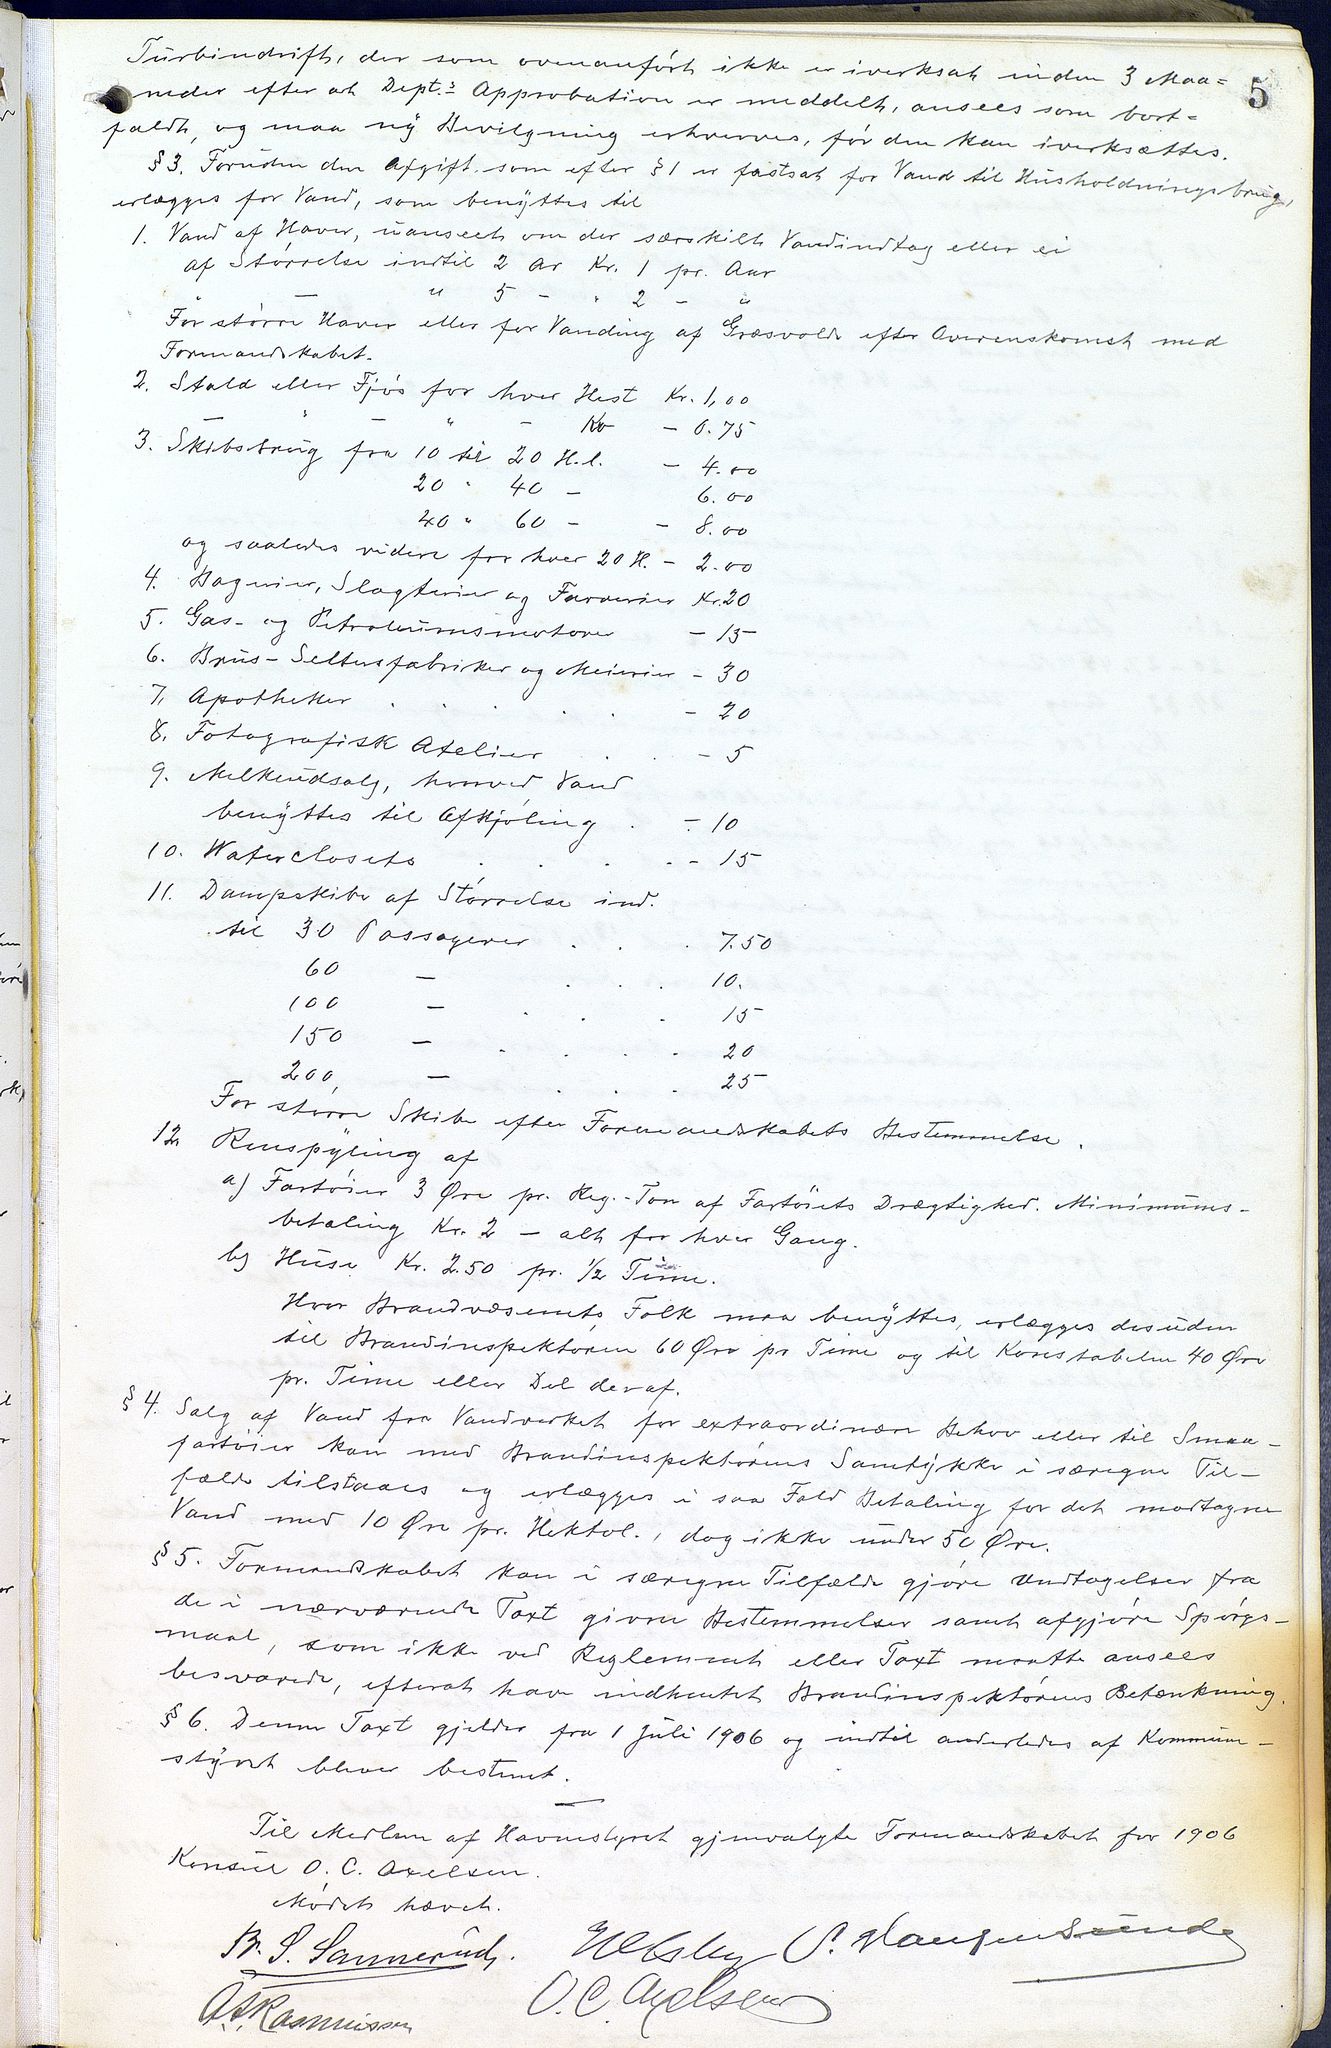 5
Turbindrift, der som ovenanført ikke er iverksat inden 3 Maa-
neder efter at Dept.s Approbation er meddelt, ansees som bort-
faldt, og maa ny Bevilgning erhverves, før den kan iverksættes.
§ 3. Foruden den Afgift som efter § 1 er fastsat for Vand til Husholdningsbrug,
erlægges for Vand, som benyttes til
1. Vand af Haver, uanseet om der særskilt Vandindtag eller ei
af Størrelse indtil 2 Ar Kr. 1 pr. Aar
" — " 5 - " 2 - "
For større Haver eller for Vanding af Græsvolde efter Overenskomst med
Formandskabet.
2. Stald eller Fjøs for hver Hest Kr. 1,00
" — " - Ko - 0.75
3. Skibsbrug fra 10 til 20 H.l. - 4.00
20 " 40 - 6.00
40 " 60 - - 8.00
og saaledes videre for hver 20 H. - 2.00
4. Bagerier, Slagterier og Farverier Kr. 20
5. Gas- og Petroleumsmotorer - 15
6. Brus- Seltersfabriker og Meierier - 30
7. Apotheker . . . . . - 20
8. Fotografisk Atelier . . - 5
9. Melkeudsalg, hvorved Vand
benyttes til Afkjøling . - 10
10. Waterclosets . . . . - 15
11. Dampskibe af Størrelse ind.
til 30 Passagerer . . . 7.50
60 — . . . . 10.
100 — . . . . 15
150 — . . . . 20
200, — . . . 25
For større Skibe efter Formandskabets Bestemmelse.
12 Renspyling af
a) Fartøier 3 Øre pr. Reg.-Ton af Fartøiets Drægtighed. Minimums-
betaling Kr. 2 - alt for hver Gang.
b) Huse Kr. 2.50 pr. ½ Time.
Hvor Brandvæsenets Folk maa benyttes, erlægges desuden
til Brandinspektøren 60 Øre pr Time og til Konstabelen 40 Øre
pr. Time eller Del deraf.
§ 4. Salg af Vand fra Vandverket for extraordinær Behov eller til Smaa-
fartøier kan med Brandinspektørens Samtykke i særegne Til-
fælde tilstaaes og erlægges i saa Fald Betaling for det modtagne
Vand med 10 Øre pr. Hektol., dog ikke under 50 Øre.
§ 5. Formandskabet kan i særegne Tilfælde gjøre Undtagelser fra
de i nærværende Taxt givne Bestemmelser samt afgjøre Spørgs-
maal, som ikke ved Reglement eller Taxt maatte ansees
besvarede, efterat have indhentet Brandinspektørens Betænkning.
§ 6. Denne Taxt gjelder fra 1 Juli 1906 og indtil anderledes af Kommune-
styret bliver bestemt.
Til Medlem af Havnestyret gjenvalgte Formandskabet for 1906
Konsul O. C. Axelsen.
Mødet hævet.
Br. S. Sannerud. P. Haugen Sunde
O. C. Axelsen
A. F. Rasmussen